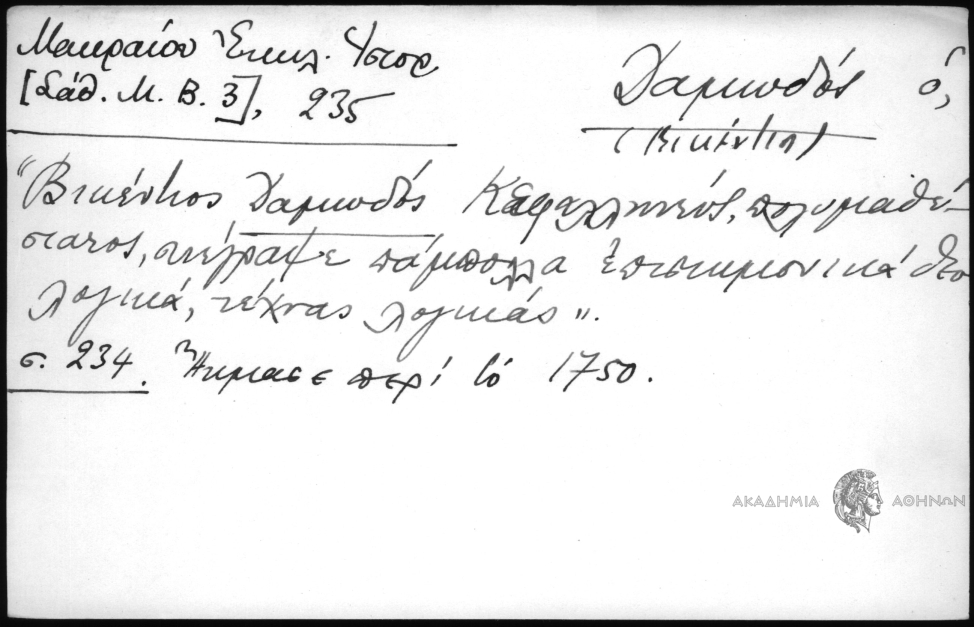 Μακραίου Ἐκκλ. Ἱστορ
[Σάθ. Μ. Β. 3], 235
Δαμωδός ὁ,
(Βικέντιος)
"Βικέντιος Δαμωδός Κεφαλληνεύς, πολυμαθέ-
στατος, συνέγραψε πάμπολλα ἐπιστημονικά θεο
λογικά, τέχνας λογικάς".
σ. 234. Ἤκμασε περί τό 1750.
ΑΚΑΔΗΜΙΑ ΑΘΗΝΩΝ